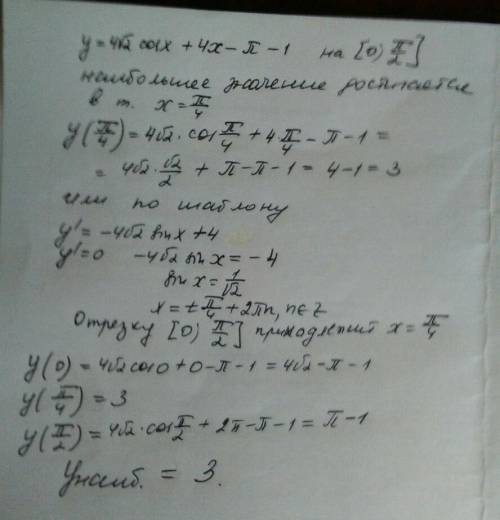 y = 4√2 cosx + 4x − π − 1 на [0; π/2]
наибольшее значение достигается
в т. x = π/4
y(π/4) = 4√2 · cos π/4 + 4 π/4 − π − 1 =
= 4√2 · √2/2 + π − π − 1 = 4 − 1 = 3
или по шаблону
y' = −4√2 sin x + 4
y' = 0 −4√2 sin x = −4
sin x = 1/√2
x = ± π/4 + 2πn, n ∈ Z
Отрезку [0; π/2] принадлежит x = π/4
y(0) = 4√2 cos 0 + 0 − π − 1 = 4√2 − π − 1
y(π/4) = 3
y(π/2) = 4√2 · cos π/2 + 2π − π − 1 = π − 1
Yнаиб. = 3.